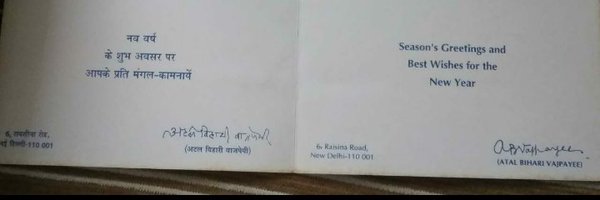 नव वर्ष
के शुभ अवसर पर
आपके प्रति मंगल-कामनायें
अटल बिहारी वाजपेयी
6, रायसीना रोड,
नई दिल्ली-110 001
(अटल बिहारी वाजपेयी)
Season's Greetings and
Best Wishes for the
New Year
6, Raisina Road,
New Delhi-110 001
ABVajpayee
(ATAL BIHARI VAJPAYEE)